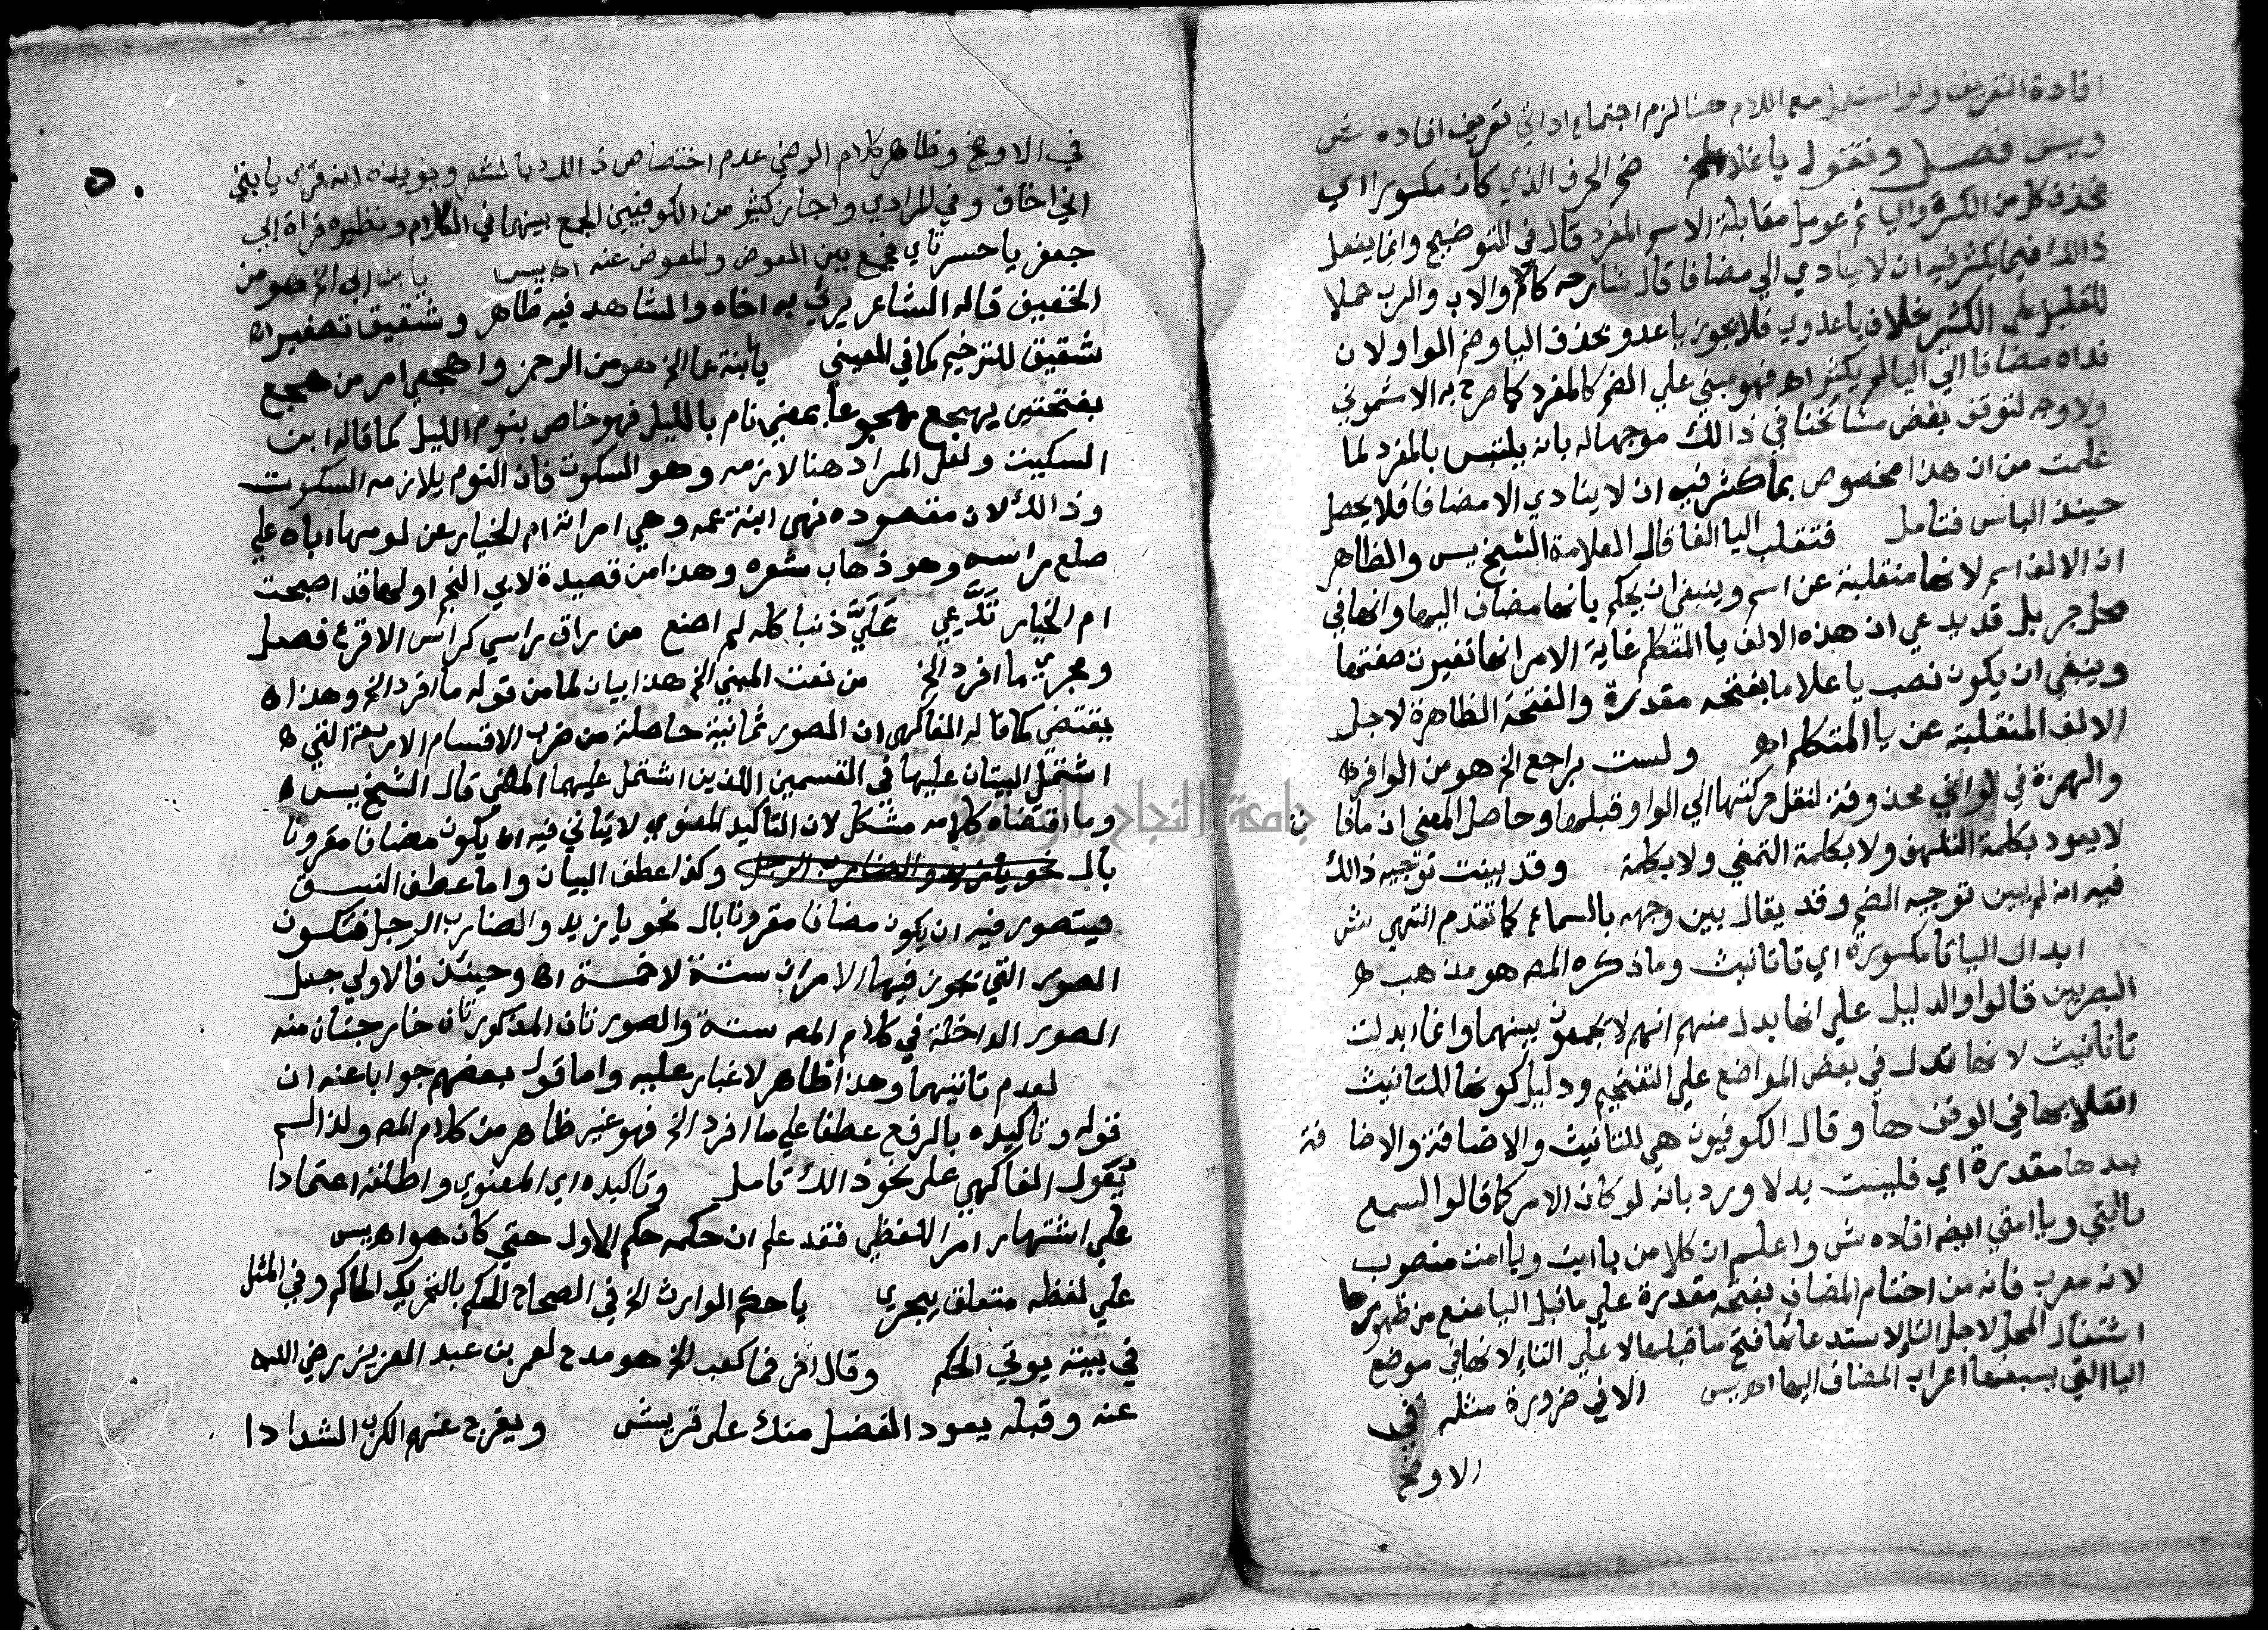 افادة التعريف ولو استعمل مع اللام هنا لزم اجتماع اداتي تعريف افاده ش
ويس فصل ونقول يا غلام الخ ضم الحرف الذي كان مكسورا اي
فحذف كل من الكسرة واليا ثم عومل مقابلة الاسم المفرد قال في التوضيح وانما يفعل
ذالك فيما يكثر فيه ان لا ينادي الي مضافا قال شارحه كالام والاب والرب حملا
للقليل علي الكثير بخلاف يا عدوي فلا يجوز يا عدو بحذف اليا وضم الواو لان
نداه مضافا الي اليا لم يكثر اه فهو مبني علي الضم كالمفرد كما صرح به الاشموني
ولا وجه لتوقف بعض مشائخنا في ذالك موجها له بانه يلتبس بالمفرد لما
علمت من ان هذا مخصوص بما كثر فيه ان لا ينادي الا مضافا فلا يحصل
حينئذ الباس فتامل فتقلب اليا الفا قال العلامة الشيخ يس والظاهر
ان الالف اسم لانها منقلبة عن اسم وينبغي ان يحكم بانها مضاف اليها وانها في
محل جر بل قد يدعي ان هذه الالف يا المتكلم غاية الامر انها تغيرت صفتها
وينبغي ان يكون نصب يا غلاما بفتحه مقدرة والفتحة الظاهرة لاجل
الالف المنقلبة عن يا المتكلم اه ولست براجع الخ هو من الوافر
والهمزة في لو اني محذوفة لنقل حركتها الي الواو قبلها وحاصل المعني ان ما فات
لا يعود بكلمة التلهف ولا بكلمة التمني ولا بكلمة وقد بينت توجيه ذالك
فيه انه لم يبين توجيه الضم وقد يقال بين وجهه بالسماع كما تقدم انتهي ش
ابدال اليا تا مكسورة اي تا تانيث وما ذكره المص هو مذهب
البصريين قالوا والدليل علي انها بدل منهم انهم لا يجمعون بينهما وانما ابدلت
تا تانيث لانها تدل في بعض المواضع علي التفخيم ودليل كونها للتانيث
انقلابها في الوقف ها وقال الكوفيون هي للتانيث والاضافة والاضافة
بعدها مقدرة اي فليست بدلا ورد بانه لو كان الامر كما قالوا لسمع
يا ابتي ويا امتي ايضه افاده ش واعلم ان كلا من يا ابت ويا امت منصوب
لانه معرب فانه من اختتام المضاف بفتحه مقدرة علي ما قبل اليا منع من ظهورها
اشتغال المحل لاجل التا لاستدعائها فتح ما قبلها لا علي التا لانها في موضع
اليا التي يسبقها اعراب المضاف اليها اه يس الا في ضرورة مثله في
الاوضح
في الاوضح وظاهر كلام الرضي عدم اختصاص ذالك بالشعر ويؤيده انه قري يا بتي
اني اخاف وفي المرادي واجاز كثير من الكوفيين الجمع بينهما في الكلام ونظيره قراة ابي
جعفر يا حسرتاي فجمع بين العوض والمعوض عنه اه يس يا بن ابي الخ هو من
الخفيف قاله الشاعر يرثي به اخاه والشاهد فيه ظاهر وشقيق تصغير
شقيق للترخيم كما في العيني يا بنة عما الخ هو من الرجز واهجعي امر من هجع
بفتحتين يهجع هجوعا بمعني نام بالليل فهو خاص بنوم الليل كما قاله ابن
السكيت ولعل المراد هنا لازمه وهو السكوت فان النوم يلازمه السكوت
وذالك لان مقصوده نهي ابنة عمه وهي امراته ام الخيار عن لومها اياه علي
صلع راسه وهو ذهاب شعره وهذا من قصيدة لابي النجم اولها قد اصبحت
ام الخيار تدَّعي عَلَيَّ ذنبا كله لم اصنع من راق راسي كراس الاقرع فصل
ومجري ما افرد الخ من نعت المبني الخ هذا بيان لما من قوله ما افرد الخ وهذا
يقتضي كما قاله الفاكهي ان الصور ثمانية حاصلة من ضرب الاقسام الاربعة التي
اشتمل البيتان عليها في القسمين اللذين اشتمل عليهما المضي قال الشيخ يس
وما اقتضاه كلامه مشكل لان التاكيد المعنوي لا يتاتي فيه ان يكون مضافا مقرونا
بال وكذا عطف البيان واما عطف النسق
فيتصور فيه ان يكون مضافا مقرونا بال نحو يا زيد والضارب الرجل فتكون
الصور التي يجوز فيها الامران ستة لا خمسة اه وحينئذ فالاولي جعل
الصور الداخلة في كلام المص ستة والصورتان المذكورتان خارجتان منه
لعدم تاتيهما وهذا ظاهر لا غبار عليه واما قول بعضهم جوابا عنه ان
قوله وتاكيده بالرفع عطفا علي ما افرد الخ فهو غير ظاهر من كلام المص ولذا لم
يَقول الفاكهي علي نحو ذالك تامل وتاكيده اي المعنوي واطلقه اعتمادا
علي اشتهار امر اللفظي فقد علم ان حكمه حكم الاول حتي كان هو اه يس
علي لفظه متعلق بيجري يا حكم الوارث الخ في الصحاح الحكم بالتحريك الحاكم وفي المثل
في بيته يوتي الحكم وقال اخر فما كعب الخ هو مدح لعمر بن عبد العزيز رضي الله
عنه وقبله يعود الفضل منك علي قريش ويفرج عنهم الكرب الشدادا
جامعة النجاح